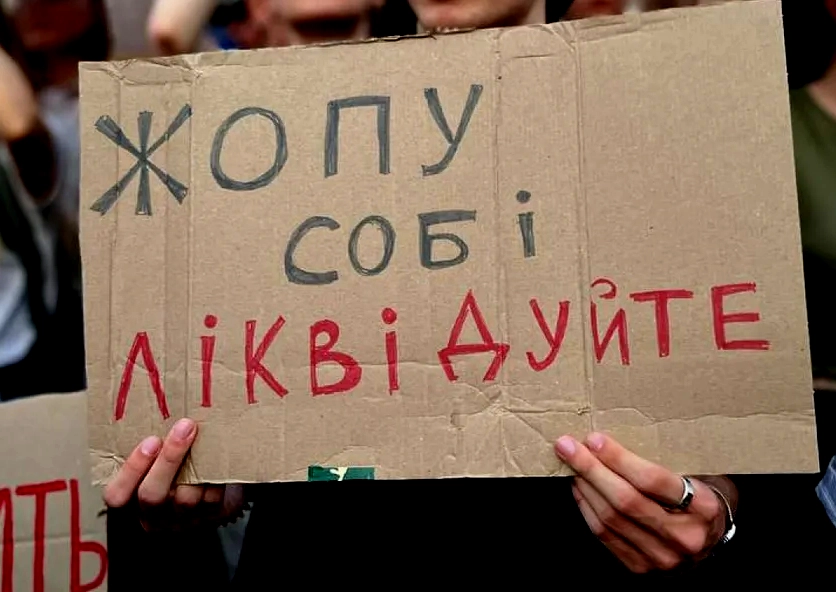 ЖОПУ
СОБІ
ЛІКВІДУЙТЕ
ИТЬ